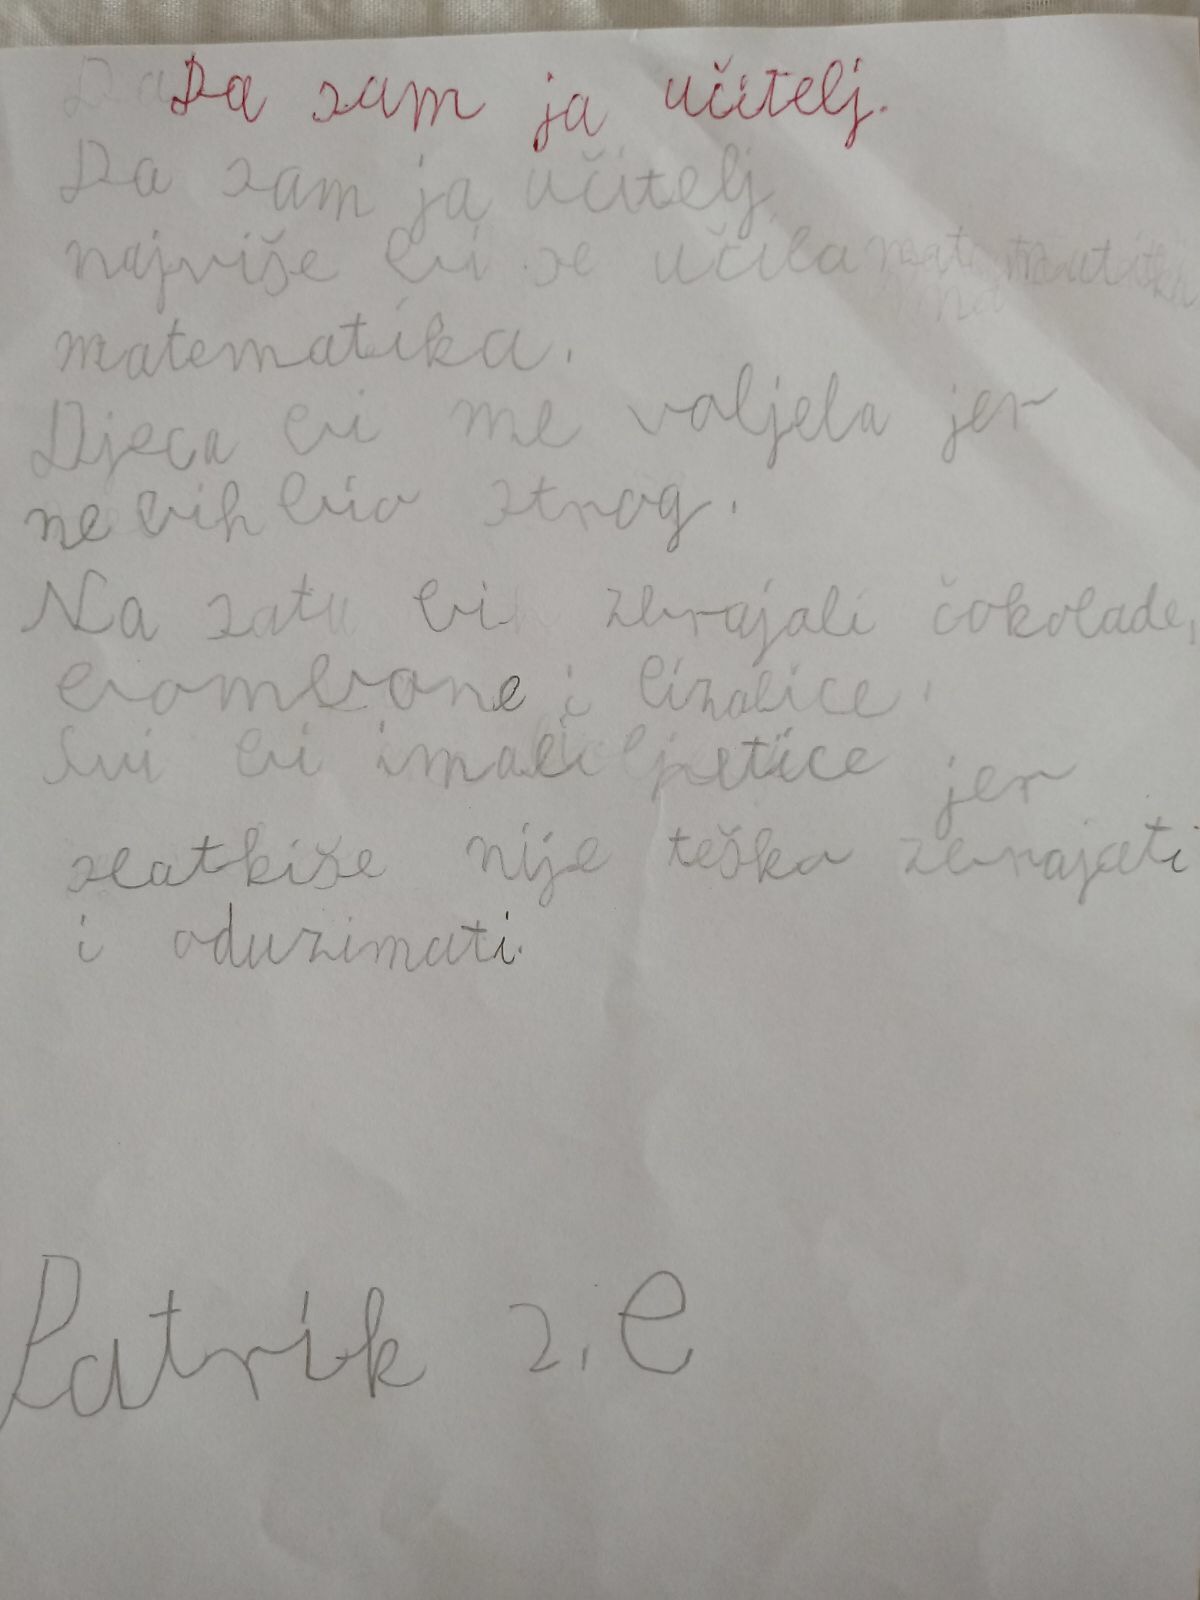 Da sam ja učitelj.
Da sam ja učitelj
najviše bi se učila
matematika.
Djeca bi me voljela jer
ne bih bio strog.
Na satu bi zbrajali čokolade,
bombone i lizalice.
Svi bi imali petice jer
slatkiše nije teško zbrajati
i oduzimati.
Patrik 2. e